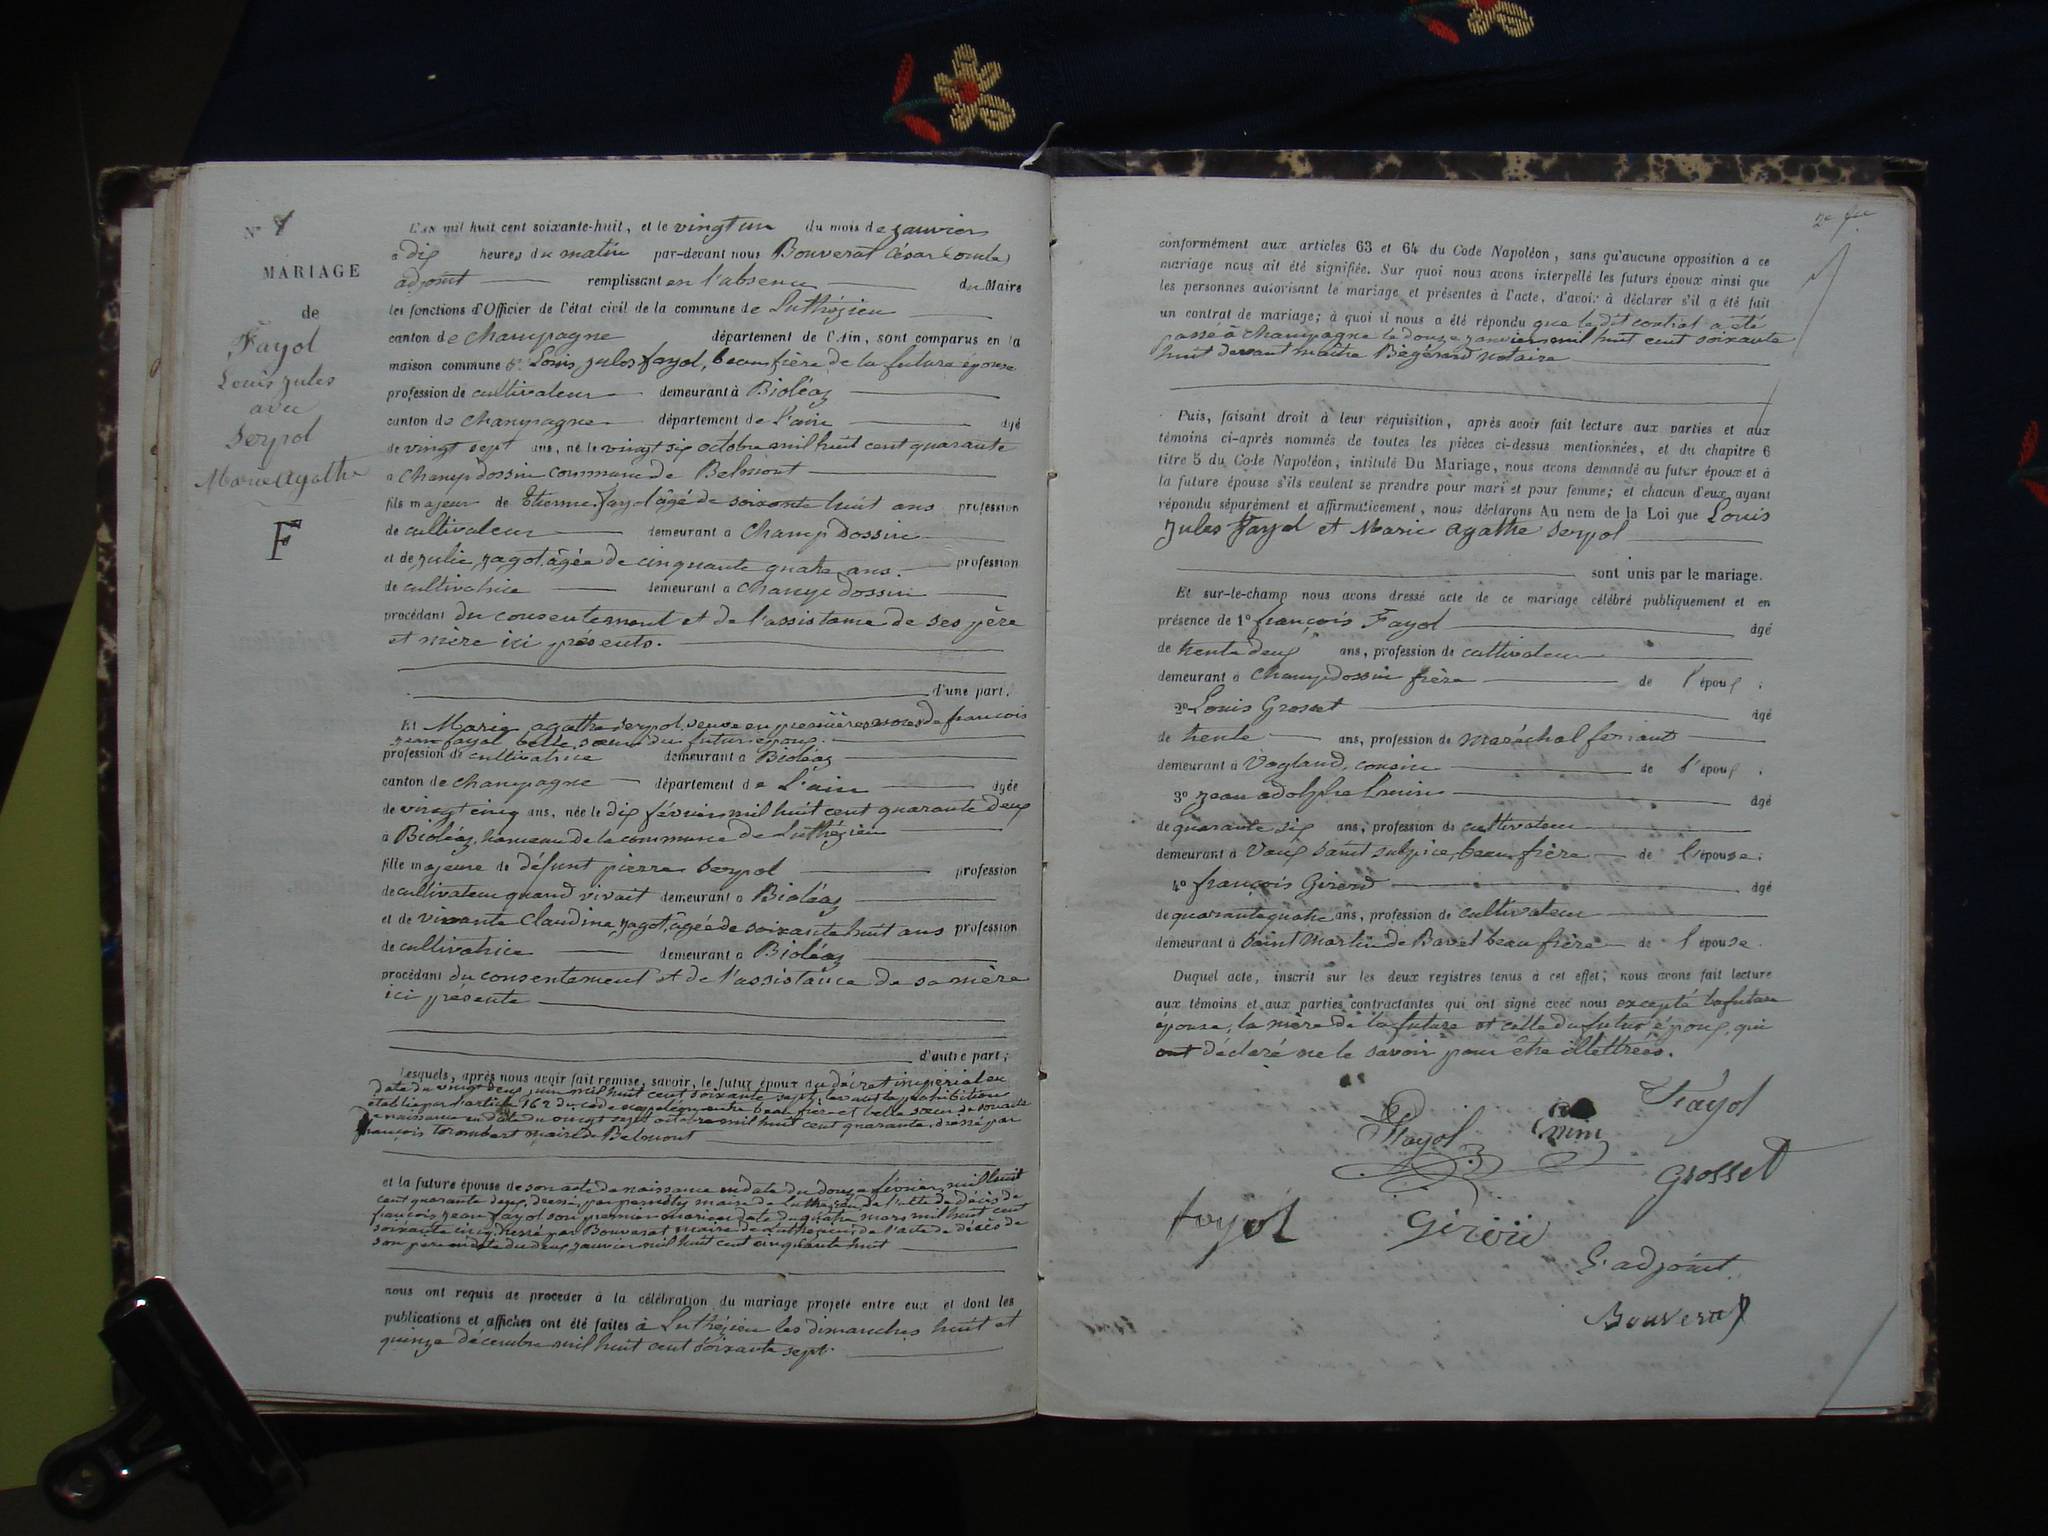 N° 1
MARIAGE
de
Fayol
Louis jules
avec
Serpol
Marie Agathe
F
L'an mil huit cent soixante-huit, et le vingt un du mois de janvier
à dix heures du matin par-devant nous Bouverat César
adjoint remplissant en l'absence du Maire
les fonctions d'Officier de l'état civil de la commune de Luthézieu
canton de champagne département de l'Ain, sont comparus en la
maison commune Louis jules fayol, beau frère de la future épouse
profession de cultivateur demeurant à Bioléaz
canton de champagne département de L'ain âgé
de vingt sept ans, né le vingt six octobre mil huit cent quarante
à Champdossin commune de Belmont
fils majeur de Etienne fayol âgé de soixante huit ans profession
de cultivateur demeurant à Champ Dossin
et de julie jagot, âgée de cinquante quatre ans. profession
de cultivatrice demeurant à champ dossin
procédant du consentement et de l'assistance de ses père
et mère ici présents.
d'une part.
Et Marie agathe serpol, veuve en premières noces de françois
jean fayol belle sœur du futur époux.
profession de cultivatrice demeurant à Bioléaz
canton de champagne département de L'ain âgée
de vingt cinq ans, née le dix février mil huit cent quarante deux
à Bioléaz, hameau de la commune de Luthézieu
fille majeure de défunt pierre Serpol profession
de cultivateur quand vivait demeurant à Bioléaz
et de vivante Claudine jagot, âgée de soixante huit ans profession
de cultivatrice demeurant à Bioléaz
procédant du consentement et de l'assistance de sa mère
ici présente
d'autre part;
Lesquels, après nous avoir fait remise, savoir, le futur époux du décret impérial en
date du vingt deux juin mil huit cent soixante sept, levant la prohibition
établie par l'article 162 du code napoléon entre beau frère et belle sœur de son acte
de naissance en date du vingt sept octobre mil huit cent quarante, dressé par
françois torombert maire de Belmont
et la future épouse de son acte de naissance en date du douze février mil huit
cent quarante deux, dressé par maire de Luthézieu, de l'acte de décès de
françois jean fayol son premier mari en date du quatre mars mil huit cent
soixante cinq, dressé par Bouverat, maire de Luthézieu, de l'acte de décès de
son père en date du deux janvier mil huit cent cinquante huit
nous ont requis de procéder à la célébration du mariage projeté entre eux et dont les
publications et affiches ont été faites à Luthézieu les dimanches huit et
quinze décembre mil huit cent soixante sept.
conformément aux articles 63 et 64 du Code Napoléon, sans qu'aucune opposition à ce
mariage nous ait été signifiée. Sur quoi nous avons interpellé les futurs époux ainsi que
les personnes autorisant le mariage et présentes à l'acte, d'avoir à déclarer s'il a été fait
un contrat de mariage; à quoi il nous a été répondu que le dit contrat a été
passé à champagne le douze janvier mil huit cent soixante
huit devant maître Bégérard notaire
Puis, faisant droit à leur réquisition, après avoir fait lecture aux parties et aux
témoins ci-après nommés de toutes les pièces ci-dessus mentionnées, et du chapitre 6
titre 5 du Code Napoléon, intitulé Du Mariage, nous avons demandé au futur époux et à
la future épouse s'ils veulent se prendre pour mari et pour femme; et chacun d'eux ayant
répondu séparément et affirmativement, nous déclarons Au nom de la Loi que Louis
Jules Fayol et Marie Agathe Serpol
sont unis par le mariage.
Et sur-le-champ nous avons dressé acte de ce mariage célébré publiquement et en
présence de 1° françois Fayol âgé
de trente deux ans, profession de cultivateur
demeurant à Champdossin frère de l'époux;
2° Louis Grosset âgé
de trente ans, profession de maréchal ferrant
demeurant à Vogland, cousin de l'époux;
3° jean adolphe âgé
de quarante six ans, profession de cultivateur
demeurant à Vaux saint sulpice, beau frère de l'épouse;
4° françois Giroud âgé
de quarante quatre ans, profession de cultivateur
demeurant à Saint Martin de Bavel beau frère de l'épouse.
Duquel acte, inscrit sur les deux registres tenus à cet effet; nous avons fait lecture
aux témoins et aux parties contractantes qui ont signé avec nous excepté la future
épouse, la mère de la future et celle du futur époux, qui
ont déclaré ne le savoir pour être illettrées.
Fayol
Fayol
Grosset
fayol
L'adjoint
Bouverat